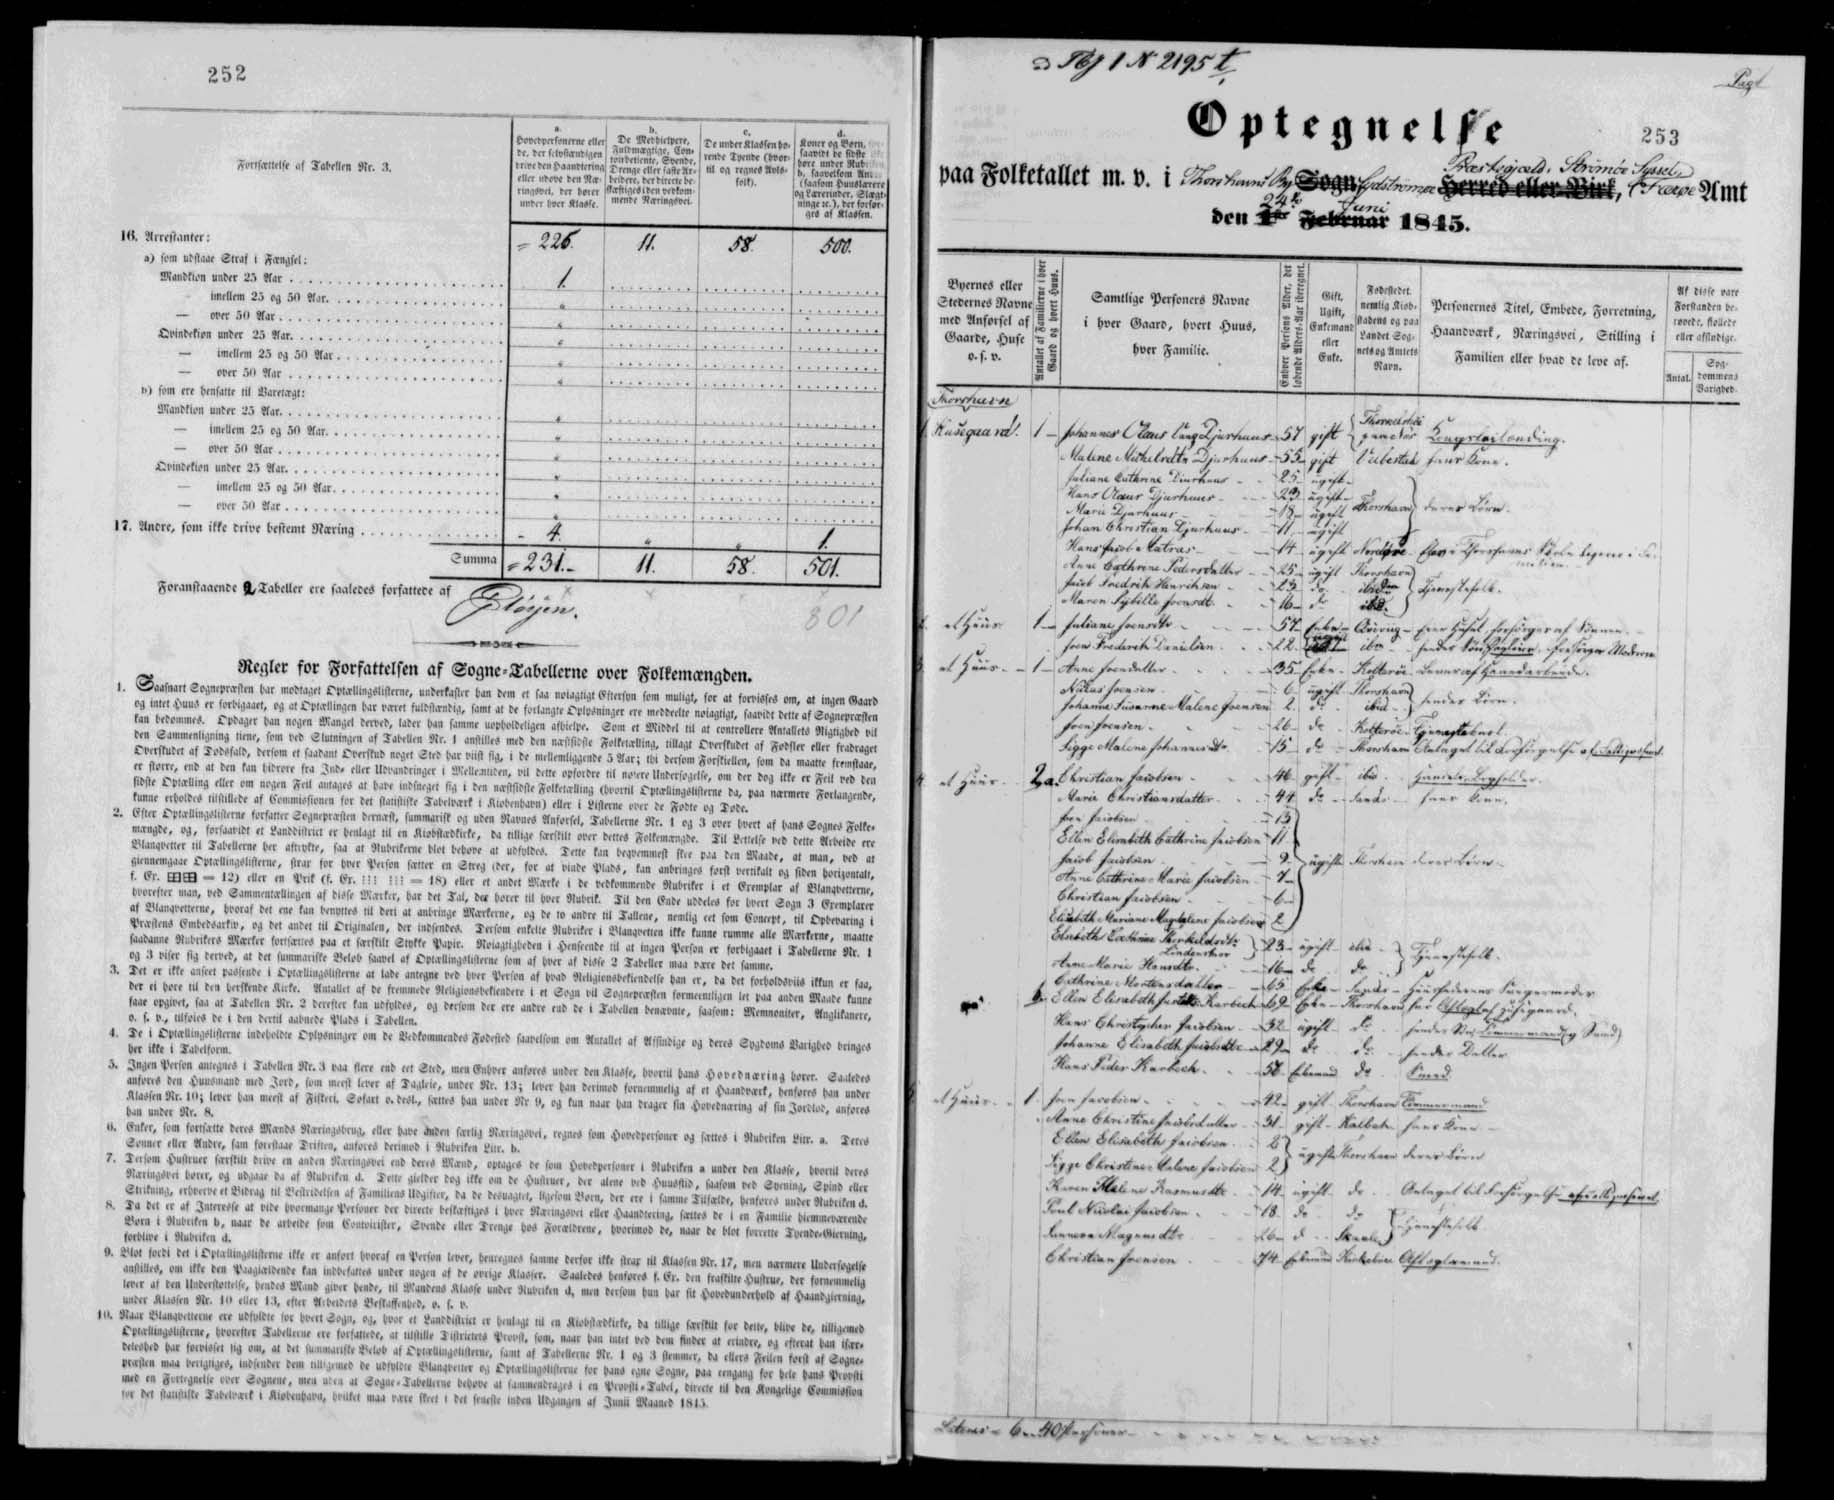 252
Fortsættelse af Tabellen Nr. 3.
a. Hovedpersonerne eller de, der selvstændigen drive den Haandtering eller udøve den Næringsvei, der hører under hver Klasse.
b. De Medhielpere, Fuldmægtige, Contoirbetiente, Svende, Drenge eller faste Arbeidere, der directe beskæftiges i den vedkommende Næringsvei.
c. De under Klassen hørende Tyende (hvortil og regnes Avlsfolk).
d. Koner og Børn, saavidt de sidste høre under b, saavelsom (saasom Huuslærere og Lærerinder, ꝛc.), der forsørges af Klassen.
16. Arrestanter: 226. 11. 58. 500.
a) som udstaae Straf i Fængsel:
Mandkion under 25 Aar 1.
— imellem 25 og 50 Aar
— over 50 Aar
Qvindekion under 25 Aar
— imellem 25 og 50 Aar
— over 50 Aar
b) som ere hensatte til Varetægt:
Mandkion under 25 Aar
— imellem 25 og 50 Aar
— over 50 Aar
Qvindekion under 25 Aar
— imellem 25 og 50 Aar
— over 50 Aar
17. Andre, som ikke drive bestemt Næring 4. " " 1.
Summa 231. 11. 58. 501.
Foranstaaende 2 Tabeller ere saaledes forfattede af
801
Regler for Forfattelsen af Sogne-Tabellerne over Folkemængden.
1. Saasnart Sognepræsten har modtaget Optællingslisterne, underkaster han dem et saa nøiagtigt Eftersyn som muligt, for at forvisses om, at ingen Gaard
og intet Huus er forbigaaet, og at Optællingen har været fuldstændig, samt at de forlangte Oplysninger ere meddeelte nøiagtigt, saavidt dette af Sognepræsten
kan bedømmes. Opdager han nogen Mangel derved, lader han samme uopholdeligen afhielpe. Som et Middel til at controllere Antallets Rigtighed vil
den Sammenligning tiene, som ved Slutningen af Tabellen Nr. 1 anstilles med den næstsidste Folketælling, tillagt Overskudet af Fødsler eller fradraget
Overskudet af Dødsfald, dersom et saadant Overskud noget Sted har viist sig, i de mellemliggende 5 Aar; thi dersom Forskiellen, som da maatte fremstaae,
er større, end at den kan hidrøre fra Ind- eller Udvandringer i Mellemtiden, vil dette opfordre til nøiere Undersøgelse, om der dog ikke er Feil ved den
sidste Optælling eller om nogen Feil antages at have indsneget sig i den næstsidste Folketælling (hvortil Optællingslisterne da, paa nærmere Forlangende,
kunne erholdes tilstillede af Commissionen for det statistiske Tabelværk i Kiøbenhavn) eller i Listerne over de Fødte og Døde.
2. Efter Optællingslisterne forfatter Sognepræsten dernæst, summarisk og uden Navnes Anførsel, Tabellerne Nr. 1 og 3 over hvert af hans Sognes Folke-
mængde, og, forsaavidt et Landdistrict er henlagt til en Kiøbstædkirke, da tillige særskilt over dettes Folkemængde. Til Lettelse ved dette Arbeide ere
Blanqvetter til Tabellerne her aftrykte, saa at Rubrikerne blot behøve at udfyldes. Dette kan beqvemmest skee paa den Maade, at man, ved at
giennemgaae Optællingslisterne, strax for hver Person sætter en Streg (der, for at vinde Plads, kan anbringes først vertikalt og siden horizontalt,
f. Ex. = 12) eller en Prik (f. Ex. = 18) eller et andet Mærke i de vedkommende Rubriker i et Exemplar af Blanqvetterne,
hvorefter man, ved Sammentællingen af disse Mærker, har det Tal, der hører til hver Rubrik. Til den Ende uddeles for hvert Sogn 3 Exemplarer
af Blanqvetterne, hvoraf det ene kan benyttes til deri at anbringe Mærkerne, og de to andre til Tallene, nemlig eet som Concept, til Opbevaring i
Præstens Embedsarkiv, og det andet til Originalen, der indsendes. Dersom enkelte Rubriker i Blanqvetten ikke kunne rumme alle Mærkerne, maatte
saadanne Rubrikers Mærker fortsættes paa et særskilt Stykke Papir. Nøiagtigheden i Henseende til at ingen Person er forbigaaet i Tabellerne Nr. 1
og 3 viser sig derved, at det summariske Beløb saavel af Optællingslisterne som af hver af disse 2 Tabeller maa være det samme.
3. Det er ikke anseet passende i Optællingslisterne at lade antegne ved hver Person af hvad Religionsbekiendelse han er, da det forholdsviis ikkun er faa,
der ei høre til den herskende Kirke. Antallet af de fremmede Religionsbekiendere i et Sogn vil Sognepræsten formeentligen let paa anden Maade kunne
faae opgivet, saa at Tabellen Nr. 2 derefter kan udfyldes, og dersom der ere andre end de i Tabellen benævnte, saasom: Memnoniter, Anglikanere,
o. s. v., tilføies de i den dertil aabnede Plads i Tabellen.
4. De i Optællingslisterne indeholdte Oplysninger om de Vedkommendes Fødested saavelsom om Antallet af Afsindige og deres Sygdoms Varighed bringes
her ikke i Tabelform.
5. Ingen Person antegnes i Tabellen Nr. 3 paa flere end eet Sted, men Enhver anføres under den Klasse, hvortil hans Hovednæring hører. Saaledes
anføres den Huusmand med Jord, som meest lever af Dagleie, under Nr. 13; lever han derimod fornemmelig af et Haandværk, henføres han under
Klassen Nr. 10; lever han meest af Fiskeri, Søfart o. desl., sættes han under Nr 9, og kun naar han drager sin Hovednæring af sin Jordlod, anføres
han under Nr. 8.
6. Enker, som fortsætte deres Mænds Næringsbrug, eller have anden særlig Næringsvei, regnes som Hovedpersoner og sættes i Rubriken Litr. a. Deres
Sønner eller Andre, som forestaae Driften, anføres derimod i Rubriken Litr. b.
7. Dersom Hustruer særskilt drive en anden Næringsvei end deres Mænd, optages de som Hovedpersoner i Rubriken a under den Klasse, hvortil deres
Næringsvei hører, og udgaae da af Rubriken d. Dette gielder dog ikke om de Hustruer, der alene ved Huusflid, saasom ved Syening, Spind eller
Strikning, erhverve et Bidrag til Bestridelsen af Familiens Udgifter, da de desuagtet, ligesom Børn, der ere i samme Tilfælde, henføres under Rubriken d.
8. Da det er af Interesse at vide hvormange Personer der directe beskæftiges i hver Næringsvei eller Haandtering, sættes de i en Familie hiemmeværende
Børn i Rubriken b, naar de arbeide som Contoirister, Svende eller Drenge hos Forældrene, hvorimod de, naar de blot forrette Tyende-Gierning,
forblive i Rubriken d.
9. Blot fordi det i Optællingslisterne ikke er anført hvoraf en Person lever, henregnes samme derfor ikke strax til Klassen Nr. 17, men nærmere Undersøgelse
anstilles, om ikke den Paagiældende kan indbefattes under nogen af de øvrige Klasser. Saaledes henføres f. Ex. den fraskilte Hustrue, der fornemmelig
lever af den Understøttelse, hendes Mand giver hende, til Mandens Klasse under Rubriken d, men dersom hun har sit Hovedunderhold af Haandgierning,
under Klassen Nr. 10 eller 13, efter Arbeidets Beskaffenhed, o. s. v.
10. Naar Blanqvetterne ere udfyldte for hvert Sogn, og, hvor et Landdistrict er henlagt til en Kiøbstædkirke, da tillige særskilt for dette, blive de, tilligemed
Optællingslisterne, hvorefter Tabellerne ere forfattede, at tilstille Districtets Provst, som, naar han intet ved dem finder at erindre, og efterat han især-
deleshed har forvisset sig om, at det summariske Beløb af Optællingslisterne, samt af Tabellerne Nr. 1 og 3 stemmer, da ellers Feilen først af Sogne-
præsten maa berigtiges, indsender dem tilligemed de udfyldte Blanqvetter og Optællingslisterne for hans egne Sogne, paa eengang for hele hans Provsti
med en Fortegnelse over Sognene, men uden at Sogne-Tabellerne behøve at sammendrages i en Provsti-Tabel, directe til den Kongelige Commission
for det statistiske Tabelværk i Kiøbenhavn, hvilket maa være skeet i det seneste inden Udgangen af Junii Maaned 1845.
N 2195
253
Optegnelse
Præstegjæld, Strømøe Syssel,
paa Folketallet m. v. i Thorshavns By Sogn Sydstrømøe Herred eller Birk, Færøe Amt
24de Juni
den 1ste Februar 1845.
Byernes eller Stedernes Navne med Anførsel af Gaarde, Huse o. s. v.
Antallet af Familierne i hver Gaard og hvert Huus.
Samtlige Personers Navne i hver Gaard, hvert Huus, hver Familie.
Enhver Persons Alder, det løbende Alders-Aar iberegnet.
Gift, Ugift, Enkemand eller Enke.
Fødestedet, nemlig Kiøbstadens og paa Landet Sognets og Amtets Navn.
Personernes Titel, Embede, Forretning, Haandværk, Næringsvei, Stilling i Familien eller hvad de leve af.
Af disse vare Forstanden berøvede, fiollede eller afsindige.
Antal.
Sygdommens Varighed.
Thorshavn
1. Husegaard. 1 Johannes Olaus Djurhuus 57 gift
Malene Djurhuus 55 gift hans Kone.
Juliane Cathrine Djurhuus 25 ugift
Hans Olaus Djurhuus 23 ugift
Marie Djurhuus 18 ugift Thorshavn deres Børn.
Johan Christian Djurhuus 11 ugift
Hans Jacob Matras 14 ugift
Anne Cathrine Pedersdatter 25 ugift Thorshavn
Jacob Fredrik Henriksen 23 do Tjenestefolk.
Maren Sybille Joensdt. 16 do ibid.
2. et Huus 1 Juliane Joensdtr 57 Enke
Joen Frederik Danielsen 22
3. et Huus 1 Anne Joensdatter 35 Enke Kolterøe Lever af Haandarbeide.
Joensen 6 ugift Thorshavn
Johanne Susanne Malene Joensen 2 do ibid hendes Børn.
Joen Joensen 26 do Kolterøe
Sigge Malene Johannesdtr 15 do Thorshavn Antaget til Forsørgelse af
4. et Huus 2 a. Christian Jacobsen 46 gift ibid
Marie Christiansdatter 44 do hans Kone.
Joen Jacobsen 13
Ellen Elisabeth Cathrine Jacobsen 11
Jacob Jacobsen 9 ugifte Thorshavn deres Børn
Anne Cathrine Marie Jacobsen 7
Christian Jacobsen 6
Elisabeth Mariane Magdalene Jacobsen 2
Elsebeth Cathrine 23 ugift ibid Tjenestefolk.
Anne Marie Hansdtr 16 do do
Cathrine Mortensdatter 65 Enke
b. Ellen Elisabeth Karbech 69 Enke Thorshavn
Hans Christopher Jacobsen 32 ugift do
Johanne Elisabeth Jacobsdtr 29 do do hendes Datter
Hans Peder Karbech 56 Enkemand do Smed.
et Huus 1 Joen Jacobsen 42 gift Thorshavn Tømmermand
Anne Christine Jacobsdatter 31 gift Kalbak hans Kone
Ellen Elisabeth Jacobsen
Sigge Christine Malene Jacobsen 2 ugifte Thorshavn deres Børn
Karen Malene Rasmusdtr 14 ugift do Antaget til Forsørgelse
Poul Nicolai Jacobsen 18 do do
Sunneva Magnusdtr 26 Tjenestefolk
Christian Joensen 74 Enkemand Kirkebøe Aftægtsmand.
6 40 Personer